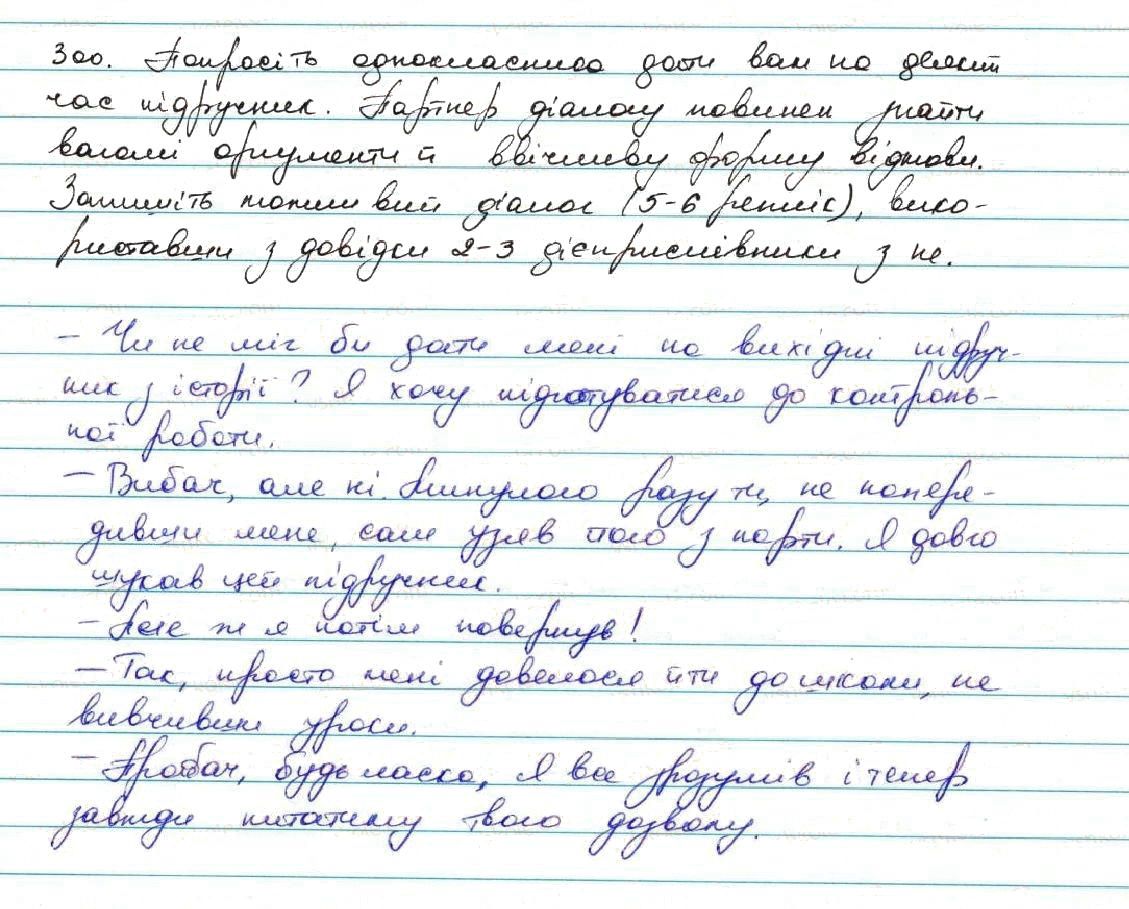 300. Попросіть однокласника дати вам на деякий
час підручник. Партнер діалогу повинен знайти
вагомі аргументи й ввічливу форму відмови.
Запишіть можливий діалог (5-6 реплік), вико-
риставши з довідки 2-3 дієприслівники з не.
– Чи не міг би дати мені на вихідні підруч-
ник з історії? Я хочу підготуватися до контроль-
ної роботи.
– Вибач, але ні. Минулого разу ти, не попере-
дивши мене, сам узяв його з парти. Я довго
шукав цей підручник.
– Але ж я потім повернув!
– Так, просто мені довелося йти до школи, не
вивчивши уроки.
– Пробач, будь ласка, Я все зрозумів і тепер
завжди питатиму твого дозволу.